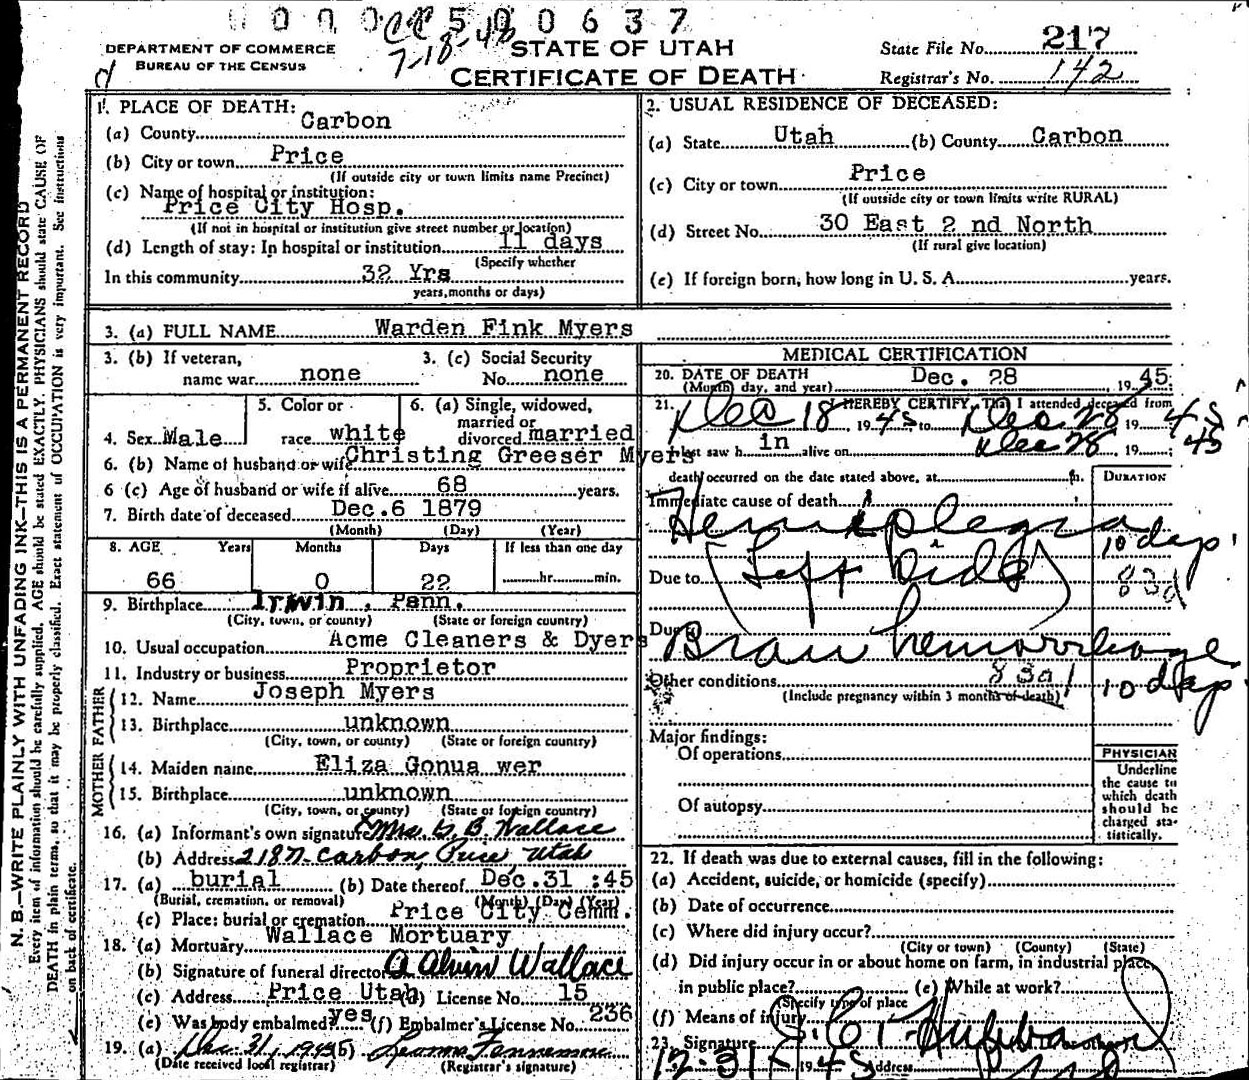 0 0 0 0 5 0 0 6 3 7
7-18-46
DEPARTMENT OF COMMERCE
BUREAU OF THE CENSUS
STATE OF UTAH
CERTIFICATE OF DEATH
State File No. 217
Registrar's No. 142
N. B.—WRITE PLAINLY WITH UNFADING INK—THIS IS A PERMANENT RECORD
Every item of information should be carefully supplied. AGE should be stated EXACTLY. PHYSICIANS should state CAUSE OF
DEATH in plain terms, so that it may be properly classified. Exact statement of OCCUPATION is very important. See instructions
on back of certificate.
1. PLACE OF DEATH:
(a) County Carbon
(b) City or town Price
(If outside city or town limits name Precinct)
(c) Name of hospital or institution:
Price City Hosp.
(If not in hospital or institution give street number or location)
(d) Length of stay: In hospital or institution 11 days
(Specify whether
In this community 32 Yrs
years, months or days)
2. USUAL RESIDENCE OF DECEASED:
(a) State Utah (b) County Carbon
(c) City or town Price
(If outside city or town limits write RURAL)
(d) Street No. 30 East 2 nd North
(If rural give location)
(e) If foreign born, how long in U. S. A. years.
3. (a) FULL NAME Warden Fink Myers
3. (b) If veteran, name war none
3. (c) Social Security No. none
4. Sex Male
5. Color or race white
6. (a) Single, widowed, married or divorced married
6. (b) Name of husband or wife Christing Greeser Myers
6 (c) Age of husband or wife if alive 68 years.
7. Birth date of deceased Dec.6 1879
(Month) (Day) (Year)
8. AGE Years Months Days If less than one day
66 0 22 hr. min.
9. Birthplace Irwin , Penn.
(City, town, or county) (State or foreign country)
10. Usual occupation Acme Cleaners & Dyers
11. Industry or business Proprietor
FATHER
12. Name Joseph Myers
13. Birthplace unknown
(City, town, or county) (State or foreign country)
MOTHER
14. Maiden name Eliza Gonua wer
15. Birthplace unknown
(City, town, or county) (State or foreign country)
16. (a) Informant's own signature Mrs. G. B. Wallace
(b) Address 218 N. Carbon, Price, Utah
17. (a) burial (b) Date thereof Dec.31 :45
(Burial, cremation, or removal) (Month) (Day) (Year)
(c) Place: burial or cremation Price City Cemm.
18. (a) Mortuary Wallace Mortuary
(b) Signature of funeral director A Alvin Wallace
(c) Address Price Utah (d) License No. 15
(e) Was body embalmed? yes (f) Embalmer's License No. 236
19. (a) Dec. 31, 1945 (b) Leona Fennemore
(Date received local registrar) (Registrar's signature)
MEDICAL CERTIFICATION
20. DATE OF DEATH
(Month, day, and year) Dec. 28, 1945
21. I HEREBY CERTIFY, That I attended deceased from
Dec 18, 1945 to Dec 28 1945
I last saw h in alive on Dec 28, 19 45;
death occurred on the date stated above, at m.
DURATION
Immediate cause of death
Hemiplegia 10 days
Due to (Left Side) 83a
Due to
Brain hemorrhage
Other conditions 83a1 10 days
(Include pregnancy within 3 months of death)
Major findings:
Of operations
Of autopsy
PHYSICIAN
Underline
the cause to
which death
should be
charged sta-
tistically.
22. If death was due to external causes, fill in the following:
(a) Accident, suicide, or homicide (specify)
(b) Date of occurrence
(c) Where did injury occur?
(City or town) (County) (State)
(d) Did injury occur in or about home on farm, in industrial place,
in public place? (e) While at work?
(Specify type of place
(f) Means of injury
23. Signature J. C. Hubbard
12-31-1945 Address